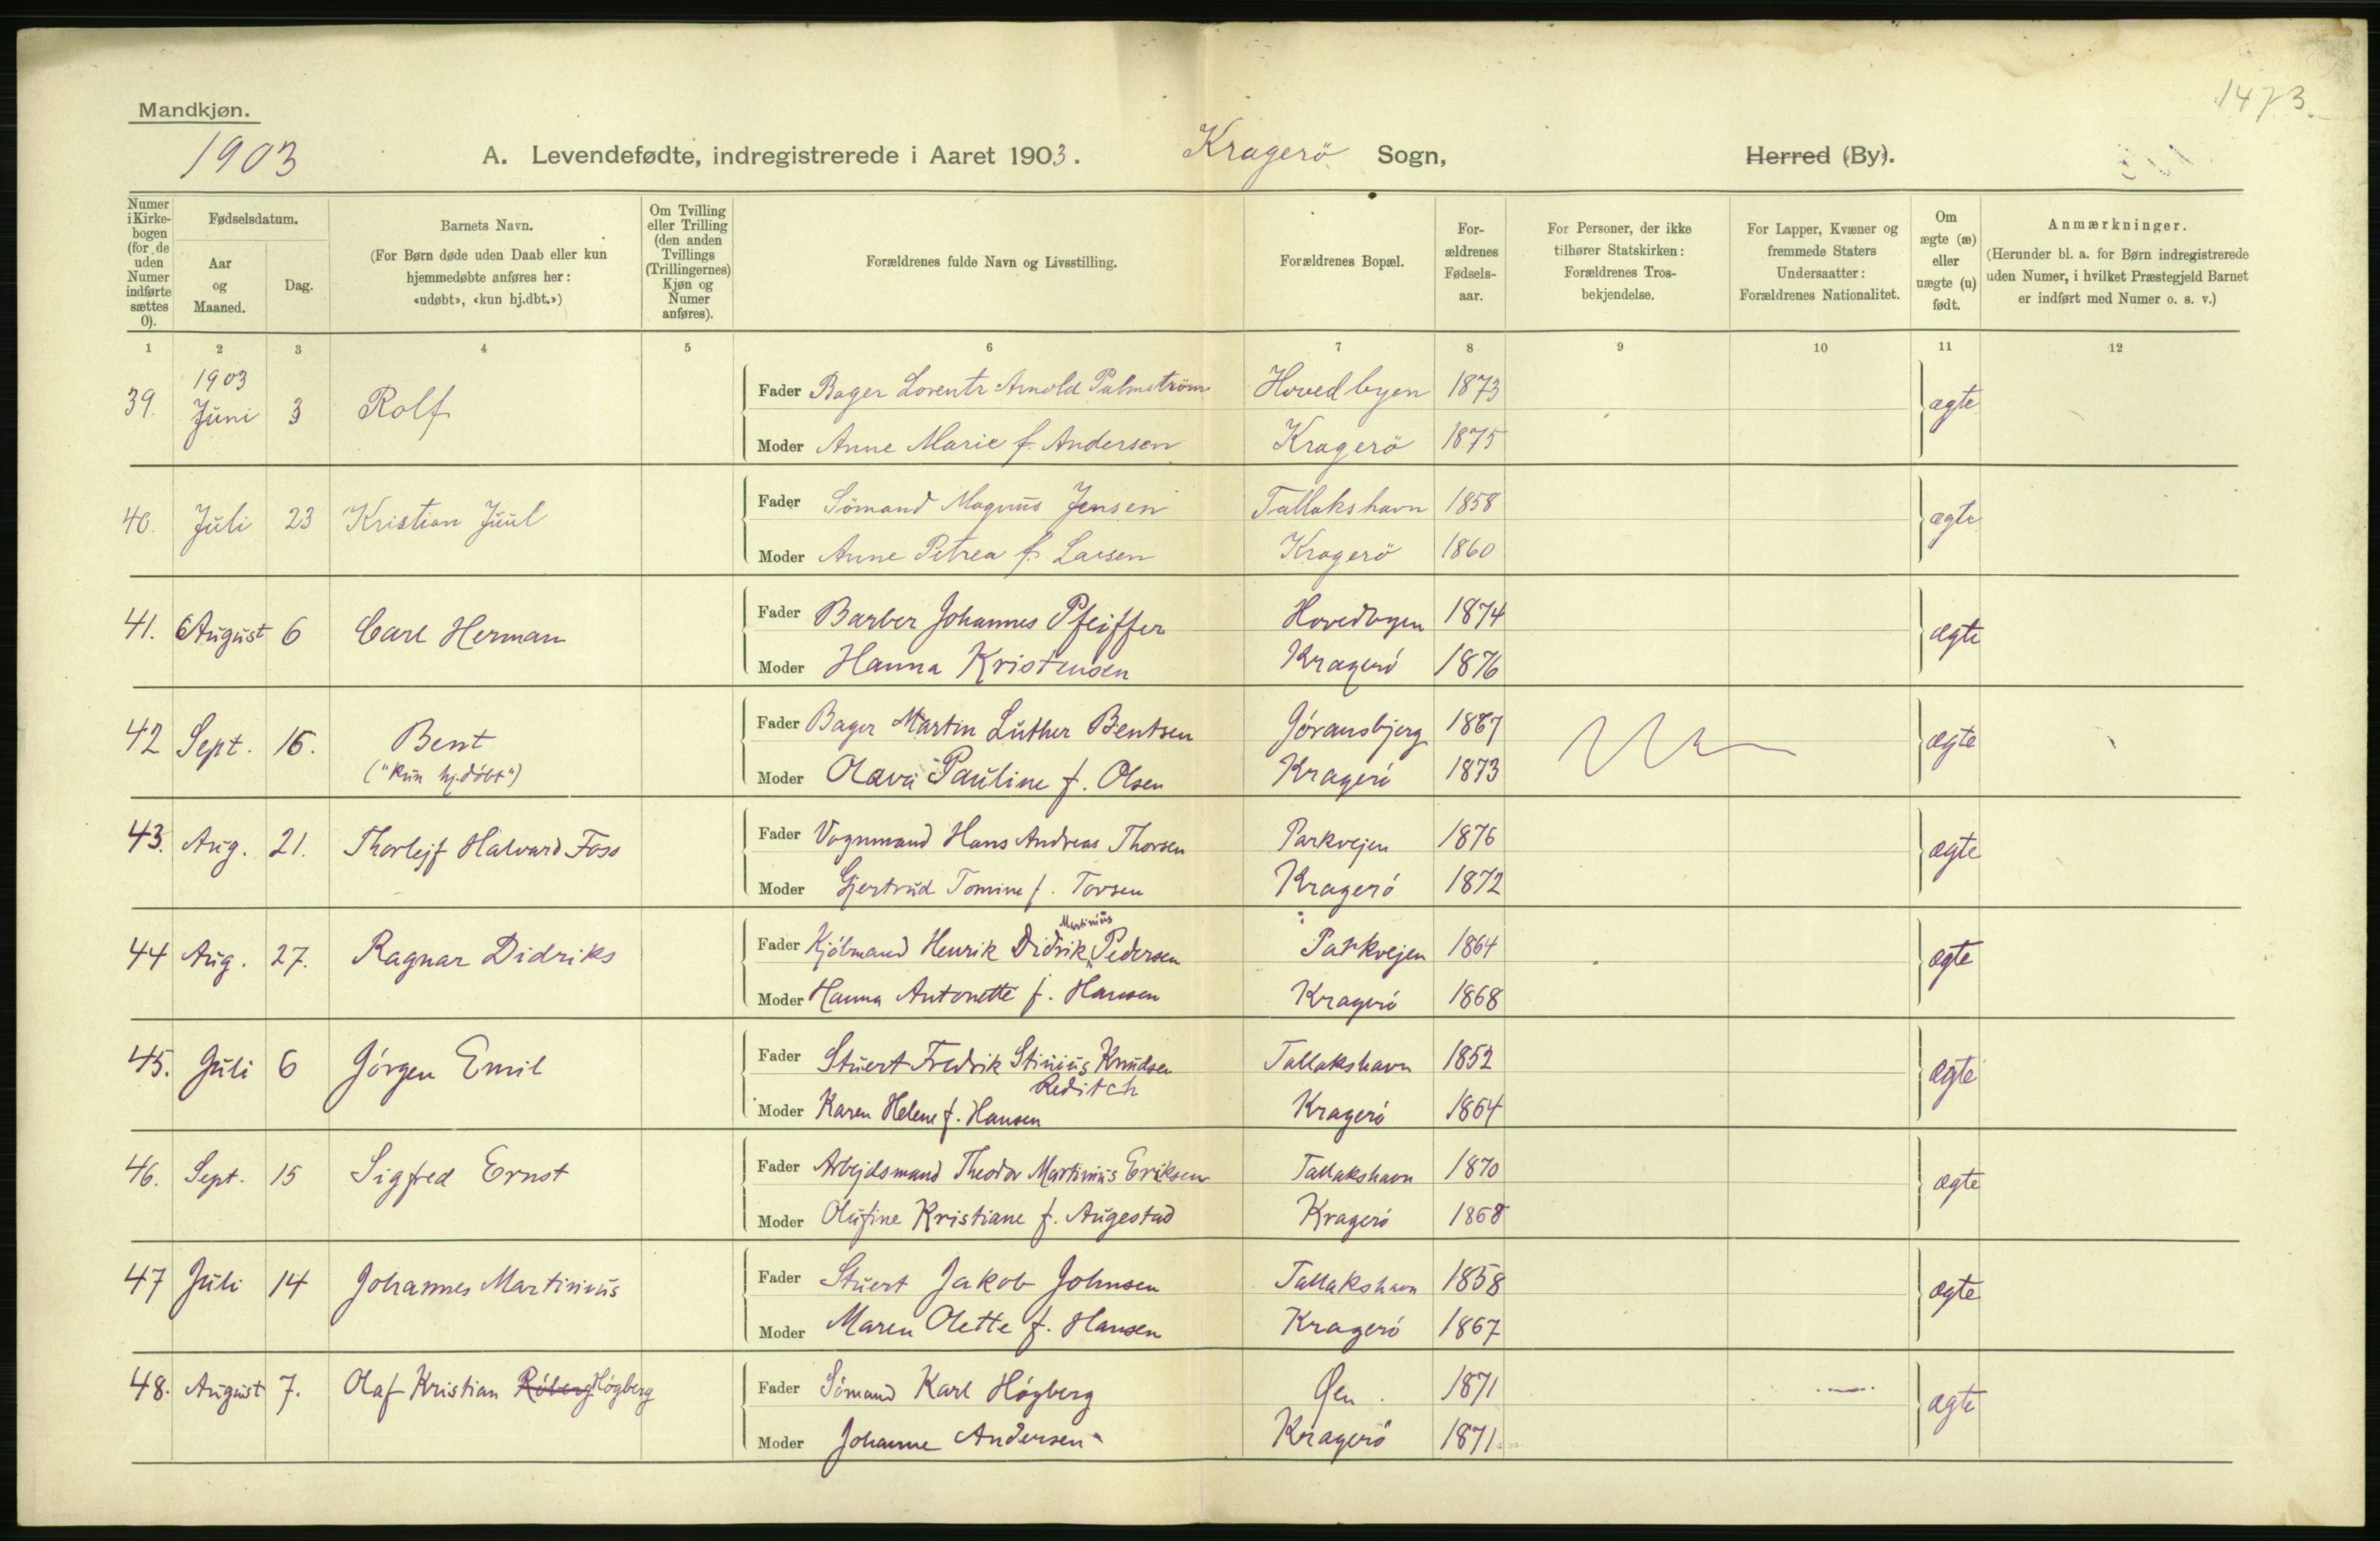 1473.
Mandkjøn.
1903
A. Levendefødte, indregistrerede i Aaret 1903. Kragerö Sogn, Herred (By).
Numer i Kirkebogen (for de uden Numer indførte sættes 0).
Fødselsdatum.
Aar og Maaned.
Dag.
Barnets Navn.
(For Børn døde uden Daab eller kun hjemmedøbte anføres her: «udøbt», «kun hj.dbt.»)
Om Tvilling eller Trilling (den anden Tvillings (Trillingernes) Kjøn og Numer anføres).
Forældrenes fulde Navn og Livsstilling.
Forældrenes Bopæl.
Forældrenes Fødselsaar.
For Personer, der ikke tilhører Statskirken: Forældrenes Trosbekjendelse.
For Lapper, Kvæner og fremmede Staters Undersaatter: Forældrenes Nationalitet.
Om ægte (æ) eller uægte (u) født.
Anmærkninger.
(Herunder bl. a. for Børn indregistrerede uden Numer, i hvilket Præstegjeld Barnet er indført med Numer o. s. v.)
1 2 3 4 5 6 7 8 9 10 11 12
39. 1903 Juni 3 Rolf Fader Bager Lorentz Arnold Palmström Hovedbyen 1873 ægte
Moder Anne Marie f. Andersen Kragerö 1875
40. Juli 23 Kristian Juul Fader Sömand Magnus Jensen Tallakshavn 1858 ægte
Moder Anne Petrea f. Larsen Kragerö 1860
41. August 6 Carl Herman Fader Barber Johannes Pfeiffer Hovedbyen 1874 ægte
Moder Hanna Kristensen Kragerö 1876
42 Sept. 15. Bent Fader Bager Martin Luther Bentsen Jóransbjerg 1867 ægte
("kun hj.döbt") Moder Olava Pauline f. Olsen Kragerö 1873
43. Aug. 21. Thorlejf Halvard Foss Fader Vognmand Hans Andreas Thorsen Parkvejen 1876 ægte
Moder Gjertrud Tomine f. Torsen Kragerö 1872
44 Aug. 27. Ragnar Didriks Fader Kjölmand Henrik Didrik Martinius Pedersen Parkvejen 1864 ægte
Moder Hanna Antonette f. Hansen Kragerö 1868
45. Juli 6 Jörgen Emil Fader Stuert Fredrik Stinius Knudsen Reditch Tallakshavn 1852 ægte
Moder Karen Helene f. Hansen Kragerö 1864
46. Sept. 15 Sigfred Ernst Fader Arbejdsmand Theodor Martinius Eriksen Tallakshavn 1870 ægte
Moder Olufine Kristiane f. Augestad Kragerö 1868
47 Juli 14 Johannes Martinius Fader Stuert Jakob Johnsen Tallakshavn 1858 ægte
Moder Maren Olette f. Hansen Kragerö 1867
48. August 7. Olaf Kristian Röberg Högberg Fader Sömand Karl Högberg Øen. 1871 ægte
Moder Johanne Andersen Kragerö 1871